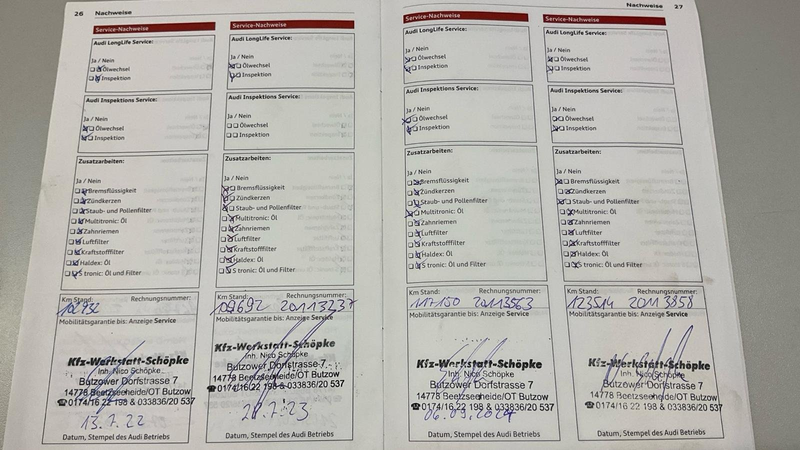 26 Nachweise
Service-Nachweise
Audi LongLife Service:
Ja / Nein
Ölwechsel
Inspektion
Audi Inspektions Service:
Ja / Nein
Ölwechsel
Inspektion
Zusatzarbeiten:
Bremsflüssigkeit
Zündkerzen
Staub- und Pollenfilter
Multitronic: Öl
Zahnriemen
Luftfilter
Kraftstofffilter
Haldex: Öl
S tronic: Öl und Filter
Km Stand: Rechnungsnummer:
102732
Mobilitätsgarantie bis: Anzeige Service
Kfz-Werkstatt-Schöpke
Inh. Nico Schöpke
Butzower Dorfstrasse 7
14778 Beetzseeheide/OT Butzow
☎0174/16 22 198 & 033836/20 537
13.7.22
Datum, Stempel des Audi Betriebs
Service-Nachweise
Audi LongLife Service:
Ja / Nein
Ölwechsel
Inspektion
Audi Inspektions Service:
Ja / Nein
Ölwechsel
Inspektion
Zusatzarbeiten:
Bremsflüssigkeit
Zündkerzen
Staub- und Pollenfilter
Multitronic: Öl
Zahnriemen
Luftfilter
Kraftstofffilter
Haldex: Öl
S tronic: Öl und Filter
Km Stand: Rechnungsnummer:
109692 20113237
Mobilitätsgarantie bis: Anzeige Service
Kfz-Werkstatt-Schöpke
Inh. Nico Schöpke
Butzower Dorfstrasse 7
14778 Beetzseeheide/OT Butzow
☎0174/16 22 198 & 033836/20 537
Datum, Stempel des Audi Betriebs
Nachweise 27
Service-Nachweise
Audi LongLife Service:
Ja / Nein
Ölwechsel
Inspektion
Audi Inspektions Service:
Ja / Nein
Ölwechsel
Inspektion
Zusatzarbeiten:
Bremsflüssigkeit
Zündkerzen
Staub- und Pollenfilter
Multitronic: Öl
Zahnriemen
Luftfilter
Kraftstofffilter
Haldex: Öl
S tronic: Öl und Filter
Km Stand: Rechnungsnummer:
117150 20113563
Mobilitätsgarantie bis: Anzeige Service
Kfz-Werkstatt-Schöpke
Inh. Nico Schöpke
Butzower Dorfstrasse 7
14778 Beetzseeheide/OT Butzow
☎0174/16 22 198 & 033836/20 537
06.09.2024
Datum, Stempel des Audi Betriebs
Service-Nachweise
Audi LongLife Service:
Ja / Nein
Ölwechsel
Inspektion
Audi Inspektions Service:
Ja / Nein
Ölwechsel
Inspektion
Zusatzarbeiten:
Bremsflüssigkeit
Zündkerzen
Staub- und Pollenfilter
Multitronic: Öl
Zahnriemen
Luftfilter
Kraftstofffilter
Haldex: Öl
S tronic: Öl und Filter
Km Stand: Rechnungsnummer:
123514 20113858
Mobilitätsgarantie bis: Anzeige Service
Kfz-Werkstatt-Schöpke
Inh. Nico Schöpke
Butzower Dorfstrasse 7
14778 Beetzseeheide/OT Butzow
☎0174/16 22 198 & 033836/20 537
Datum, Stempel des Audi Betriebs